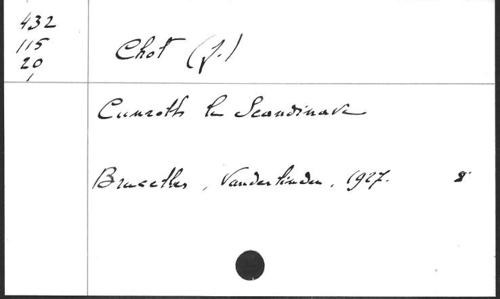 432
115
20
1
Chot (J.)
Cunroth le Scandinave
Bruxelles, Vanderlinden, 1927. 8°